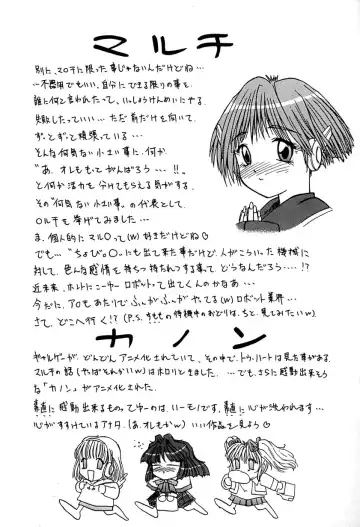 マルチ
別に、マロチに限った事じゃないんだけどね…
…不器用でもいい、自分にできる限りの事を
誰に何と言われたって、いっしょうけんめいにやる。
失敗したっていい… ただ前だけを向いて、
ずーとずーと頑張っている…
そんな何気ない小さい事に、何か
"あ、オレもまだがんばろう…!!"
と何か活力を分けてもらえる気がする。
その"何気ない小さい事"の代表として、
○ルチを挙げてみました…
ま、個人的にマル○って(w)好きだけどね♡
でも…"ちょび○○にも出て来た事だけど、人がこういった機械に
対して、色んな感情を持つ持たれつする事て、どうなんだろう…!?
近未来、ホントにこーゆーロボットって出てくんのかなあ…
今だに、ア○もあたりでふんがふんがやてる(w)ロボット業界…
さて、どこへ行く!? (P.S. すももの待機中のおどりは、ちと、見てみたいw)
カノン
ギャルゲーが、どんどんアニメ化されていて、その中で、トゥ・ハートは見た事がある。
マルチの話(やっぱそれかいw)はホロリときました。…でも、さらに感動出来そう
な「カノン」がアニメ化された。
素直に感動出来るものってゆーのは、いーモノです、素直に心が洗われます…
心がすすけているアナタ。(あ、オレもかw) いい作品を見よう♡